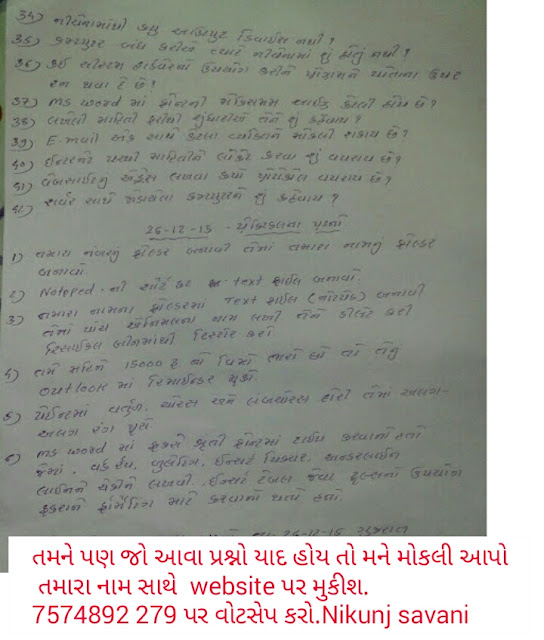 34) નીચેનામાંથી કયુ આઉટપુટ ડિવાઈસ નથી?
35) કમ્પ્યુટર બંધ કરીએ ત્યારે નીચેનામાં શું હોતું નથી?
36) કઈ સીસ્ટમ હાર્ડવેરનો ઉપયોગ કરીને પ્રોગ્રામને પોતાના ઉપર
રન થવા દે છે?
37) MS word માં ફોન્ટની મેક્સિમમ સાઈઝ કેટલી હોય છે?
38) લખેલી માહિતી ફરીથી સુધારીએ તેને શું કહેવાય?
39) E-mail એક સાથે કેટલા વ્યક્તિને મોકલી શકાય છે?
40) ઈન્ટરનેટ પરથી માહિતીને લોકેટ કરવા શું વપરાય છે?
41) વેબસાઈટનું એડ્રેસ લખવા કયો પ્રોટોકોલ વપરાય છે?
42) સર્વર સાથે જોડાયેલા કમ્પ્યુટરને શું કહેવાય?
26-12-15 - પ્રેક્ટિકલના પ્રશ્નો
1) તમારા નંબરનું ફોલ્ડર બનાવી તેમાં તમારા નામનું ફોલ્ડર
બનાવો.
2) Notepad - ની શોર્ટ કટ text ફાઈલ બનાવો.
3) તમારા નામના ફોલ્ડરમાં Text ફાઈલ (નોટપેડ) બનાવી
તેમાં પાંચ એનિમલના નામ લખી તેને ડીલેટ કરી
રિસાઈકલ બીનમાંથી રિસ્ટોર કરો.
4) તમે મહિને 15000 રૂ નો વિમો ભરો છો તો તેનું
outlook માં રિમાઈન્ડર મુકો.
5) પેઈન્ટમાં વર્તુળ, ચોરસ અને લંબચોરસ દોરી તેમાં અલગ-
અલગ રંગ પૂરો.
6) MS word માં ફકરો શ્રુતી ફોન્ટમાં ટાઈપ કરવાનો હતો
જેમાં, વર્ડ રેપ, બુલેટિંગ, ઈન્સર્ટ પિક્ચર, અન્ડરલાઈન
લાઈનને ચેકીને લખવી, ઈન્સર્ટ ટેબલ જેવા ટૂલ્સનો ઉપયોગ
ફકરાને ફોર્મેટિંગ માટે કરવાનો થતો હતો.
26-12-15 ગુજરાત
તમને પણ જો આવા પ્રશ્નો યાદ હોય તો મને મોકલી આપો
તમારા નામ સાથે website પર મુકીશ.
7574892 279 પર વોટસેપ કરો.Nikunj savani